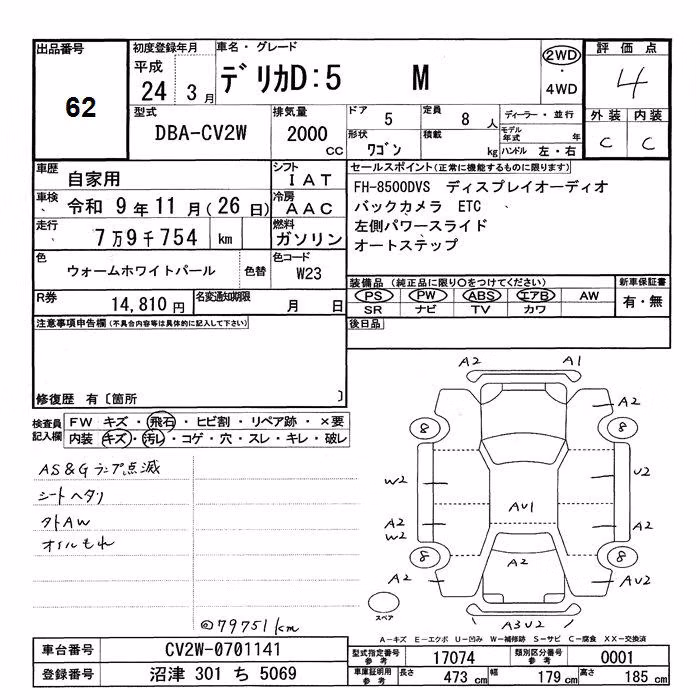 出品番号
62
初度登録年月
平成
24 3月
車名・グレード
デリカD:5 M
2WD
・
4WD
評価点
4
外装 内装
C C
型式
DBA-CV2W
排気量
2000
CC
ドア
5
定員
8人
形状
ワゴン
積載
kg
ディーラー・並行
モデル年式 年
ハンドル 左・右
車歴
自家用
シフト
IAT
車検
令和 9年11月(26日)
冷房
AAC
走行
7万9千754 km
燃料
ガソリン
色
ウォームホワイトパール
色替
色コード
W23
R券
14,810円
名変通知期限
月 日
セールスポイント(正常に機能するものに限ります)
FH-8500DVS ディスプレイオーディオ
バックカメラ ETC
左側パワースライド
オートステップ
装備品(純正品に限り○をつけてください)
PS PW ABS エアB AW
SR ナビ TV カワ
新車保証書
有・無
後日品
注意事項申告欄(不具合内容等は具体的に記入して下さい)
修復歴 有〔箇所 〕
検査員
記入欄
FW キズ・飛石・ヒビ割・リペア跡・×要
内装 キズ・汚レ・コゲ・穴・スレ・キレ・破レ
AS&Gランプ点滅
シートヘタリ
タトAW
オイルもれ
◎79751km
A2 A1
A2
8 8
W2 U2
AU1
A2 A2
W2
8 8
A2
A2 AU2
スペア
A3U2
A−キズ E−エクボ U−凹み W−補修跡 S−サビ C−腐食 XX−交換済
車台番号
CV2W-0701141
登録番号
沼津 301 ち 5069
型式指定番号
参考
17074
類別区分番号
参考
0001
車庫証明用
参考
長さ
473 cm
幅
179 cm
高さ
185 cm